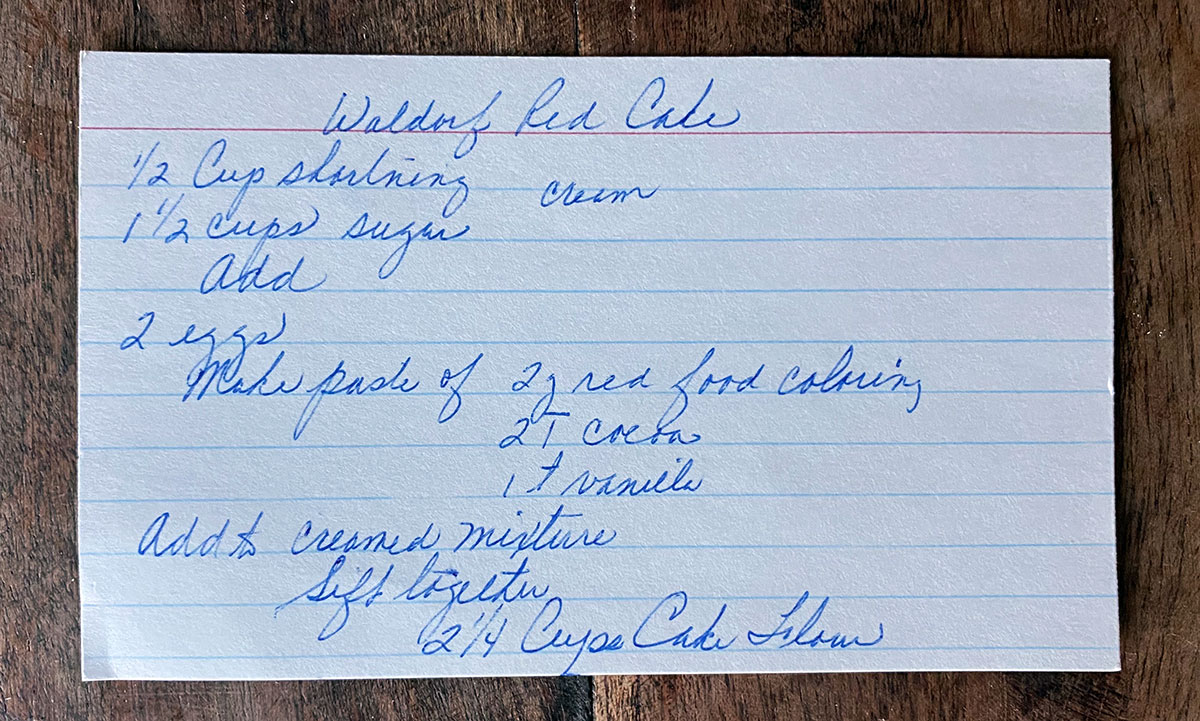 Waldorf Red Cake
1/2 Cup shortning
cream
1 1/2 cups sugar
Add
2 eggs
Make paste of 2 z red food coloring
2 T cocoa
1 t vanilla
Add to creamed mixture
Sift together
2 1/4 Cups Cake Flour